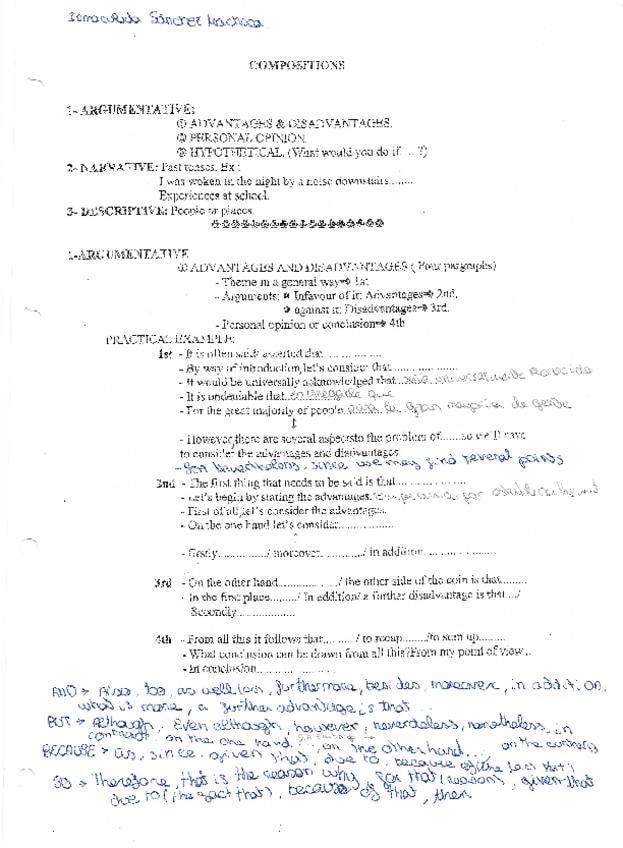 Inmaculada Sánchez
COMPOSITIONS
1- ARGUMENTATIVE:
① ADVANTAGES & DISADVANTAGES.
② PERSONAL OPINION.
③ HYPOTHETICAL. (What would you do if ... ?)
2- NARRATIVE: Past tenses. Ex :
I was woken in the night by a noise downstairs........
Experiences at school.
3- DESCRIPTIVE: People or places.
1-ARGUMENTATIVE
① ADVANTAGES AND DISADVANTAGES ( Four paragraphs)
- Theme in a general way➔ 1st
- Arguments: Infavour of it: Advantages➔ 2nd.
against it: Disadvantages➔ 3rd.
- Personal opinion or conclusion➔ 4th
PRACTICAL EXAMPLE:
1st - It is often said/ asserted that ..................
- By way of introduction,let's consider that .....................
- It would be universally acknowledged that...
- It is undeniable that es innegable que
- For the great majority of people para la gran mayoría de gente
- However,there are several aspectsto the problem of.......so we'll have
to consider the advantages and disadvantages
since we may find several points
2nd - The first thing that needs to be said is that ....................
- Let's begin by stating the advantages.
- First of all,let's consider the advantages.
- On the one hand let's consider..................
- firstly................/ moreover................/ in addition .......................
3rd - On the other hand..................../ the other side of the coin is that.........
- In the first place........./ In addition/ a further disadvantage is that .../
Secondly...................
4th - From all this it follows that........../ to recap......../to sum up.........
- What conclusion can be drawn from all this?From my point of view...
- In conclusion........................
AND > Also, too, as well as, furthermore, besides, moreover, in addition,
what is more, a further advantage is that ...
BUT > Although, Even although, however, neverdeless, nonetheless, in
contrast, on the one hand ..., on the other hand... on the contrary
BECAUSE > as, since, given that, due to, because of (the fact that)
SO > Therefore, that is the reason why, for that (reason), given that
due to (the fact that), because of that, then